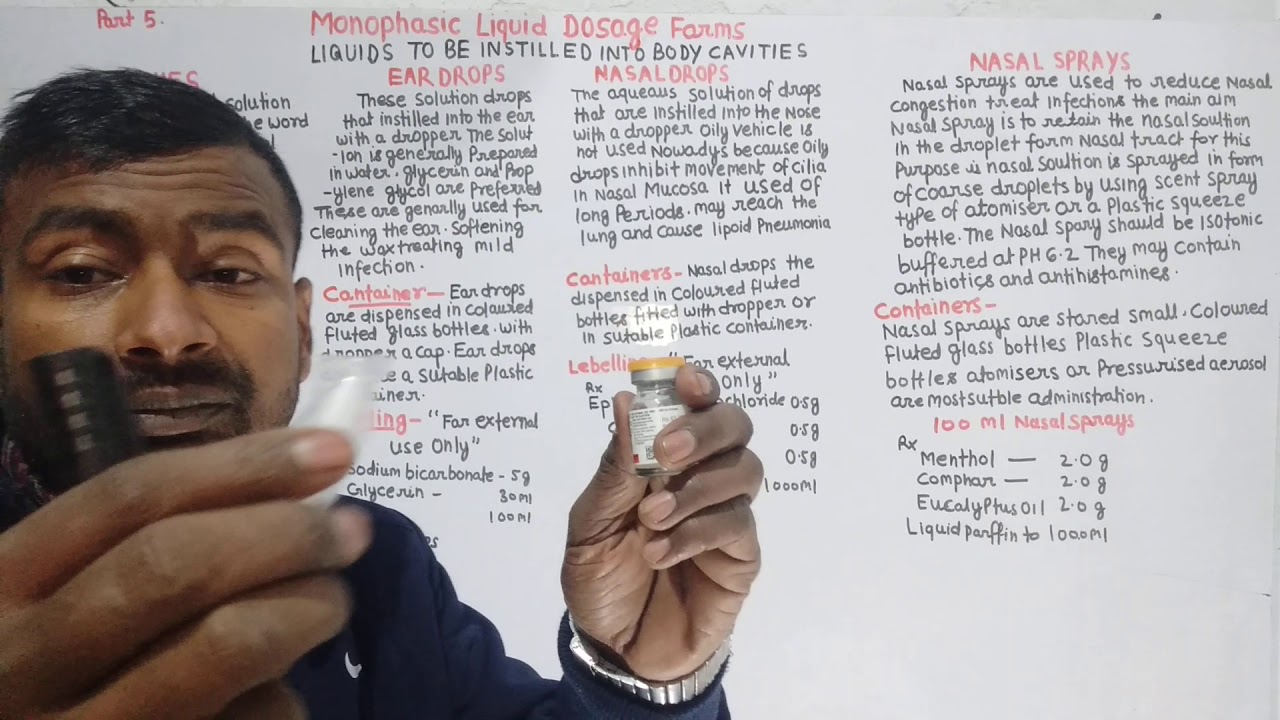 Part 5.
Monophasic Liquid Dosage Farms
LIQUIDS TO BE INSTILLED INTO BODY CAVITIES
solution
word
EAR DROPS
These solution drops
that instilled into the ear
with a dropper The solut
-ion is generally Prepared
in water, glycerin and Prop
-ylene glycol are Preferred
These are genarlly used for
cleaning the ear. Softening
the wax treating mild
infection.
Cantainer— Ear drops
are dispensed in colaured
fluted glass bottles. with
dropper a cap. Ear drops
a Sutable Plastic
iner.
ling- "For external
use Only"
Sodium bicarbonate - 5g
Glycerin - 30ml
100ml
NASAL DROPS
The aqueous solution of drops
that are instilled into the Nose
with a dropper Oily vehicle is
not used Nowadys because Oily
drops inhibit movement of cilia
in Nasal Mucosa it used of
long Periods. may reach the
lung and cause lipoid Pneumonia
Cantainers- Nasal drops the
dispensed in coloured fluted
bottles fitted with dropper or
in sutable Plastic container.
Lebelling "For external
Only"
Rx
Ep chloride 0.5g
0.5g
0.5g
1000ml
NASAL SPRAYS
Nasal Sprays are used to reduce Nasal
congestion treat infections the main aim
Nasal spray is to retain the nasal soultion
in the droplet form Nasal tract for this
Purpose is nasal soultion is sprayed in form
of coarse droplets by using scent spray
type of atomiser or a Plastic squeeze
bottle. The Nasal Spary should be isotonic
buffered at PH 6.2 They may contain
antibiotics and antihistamines.
Containers-
Nasal sprays are stared small, Coloured
fluted glass bottles Plastic squeeze
bottles atomisers or Pressurised aerosol
are most sutble administration.
100 ml Nasal sprays
Rx
Menthol — 2.0 g
Comphar — 2.0 g
Eucalyptus Oil 2.0 g
Liquid parffin to 100.0ml